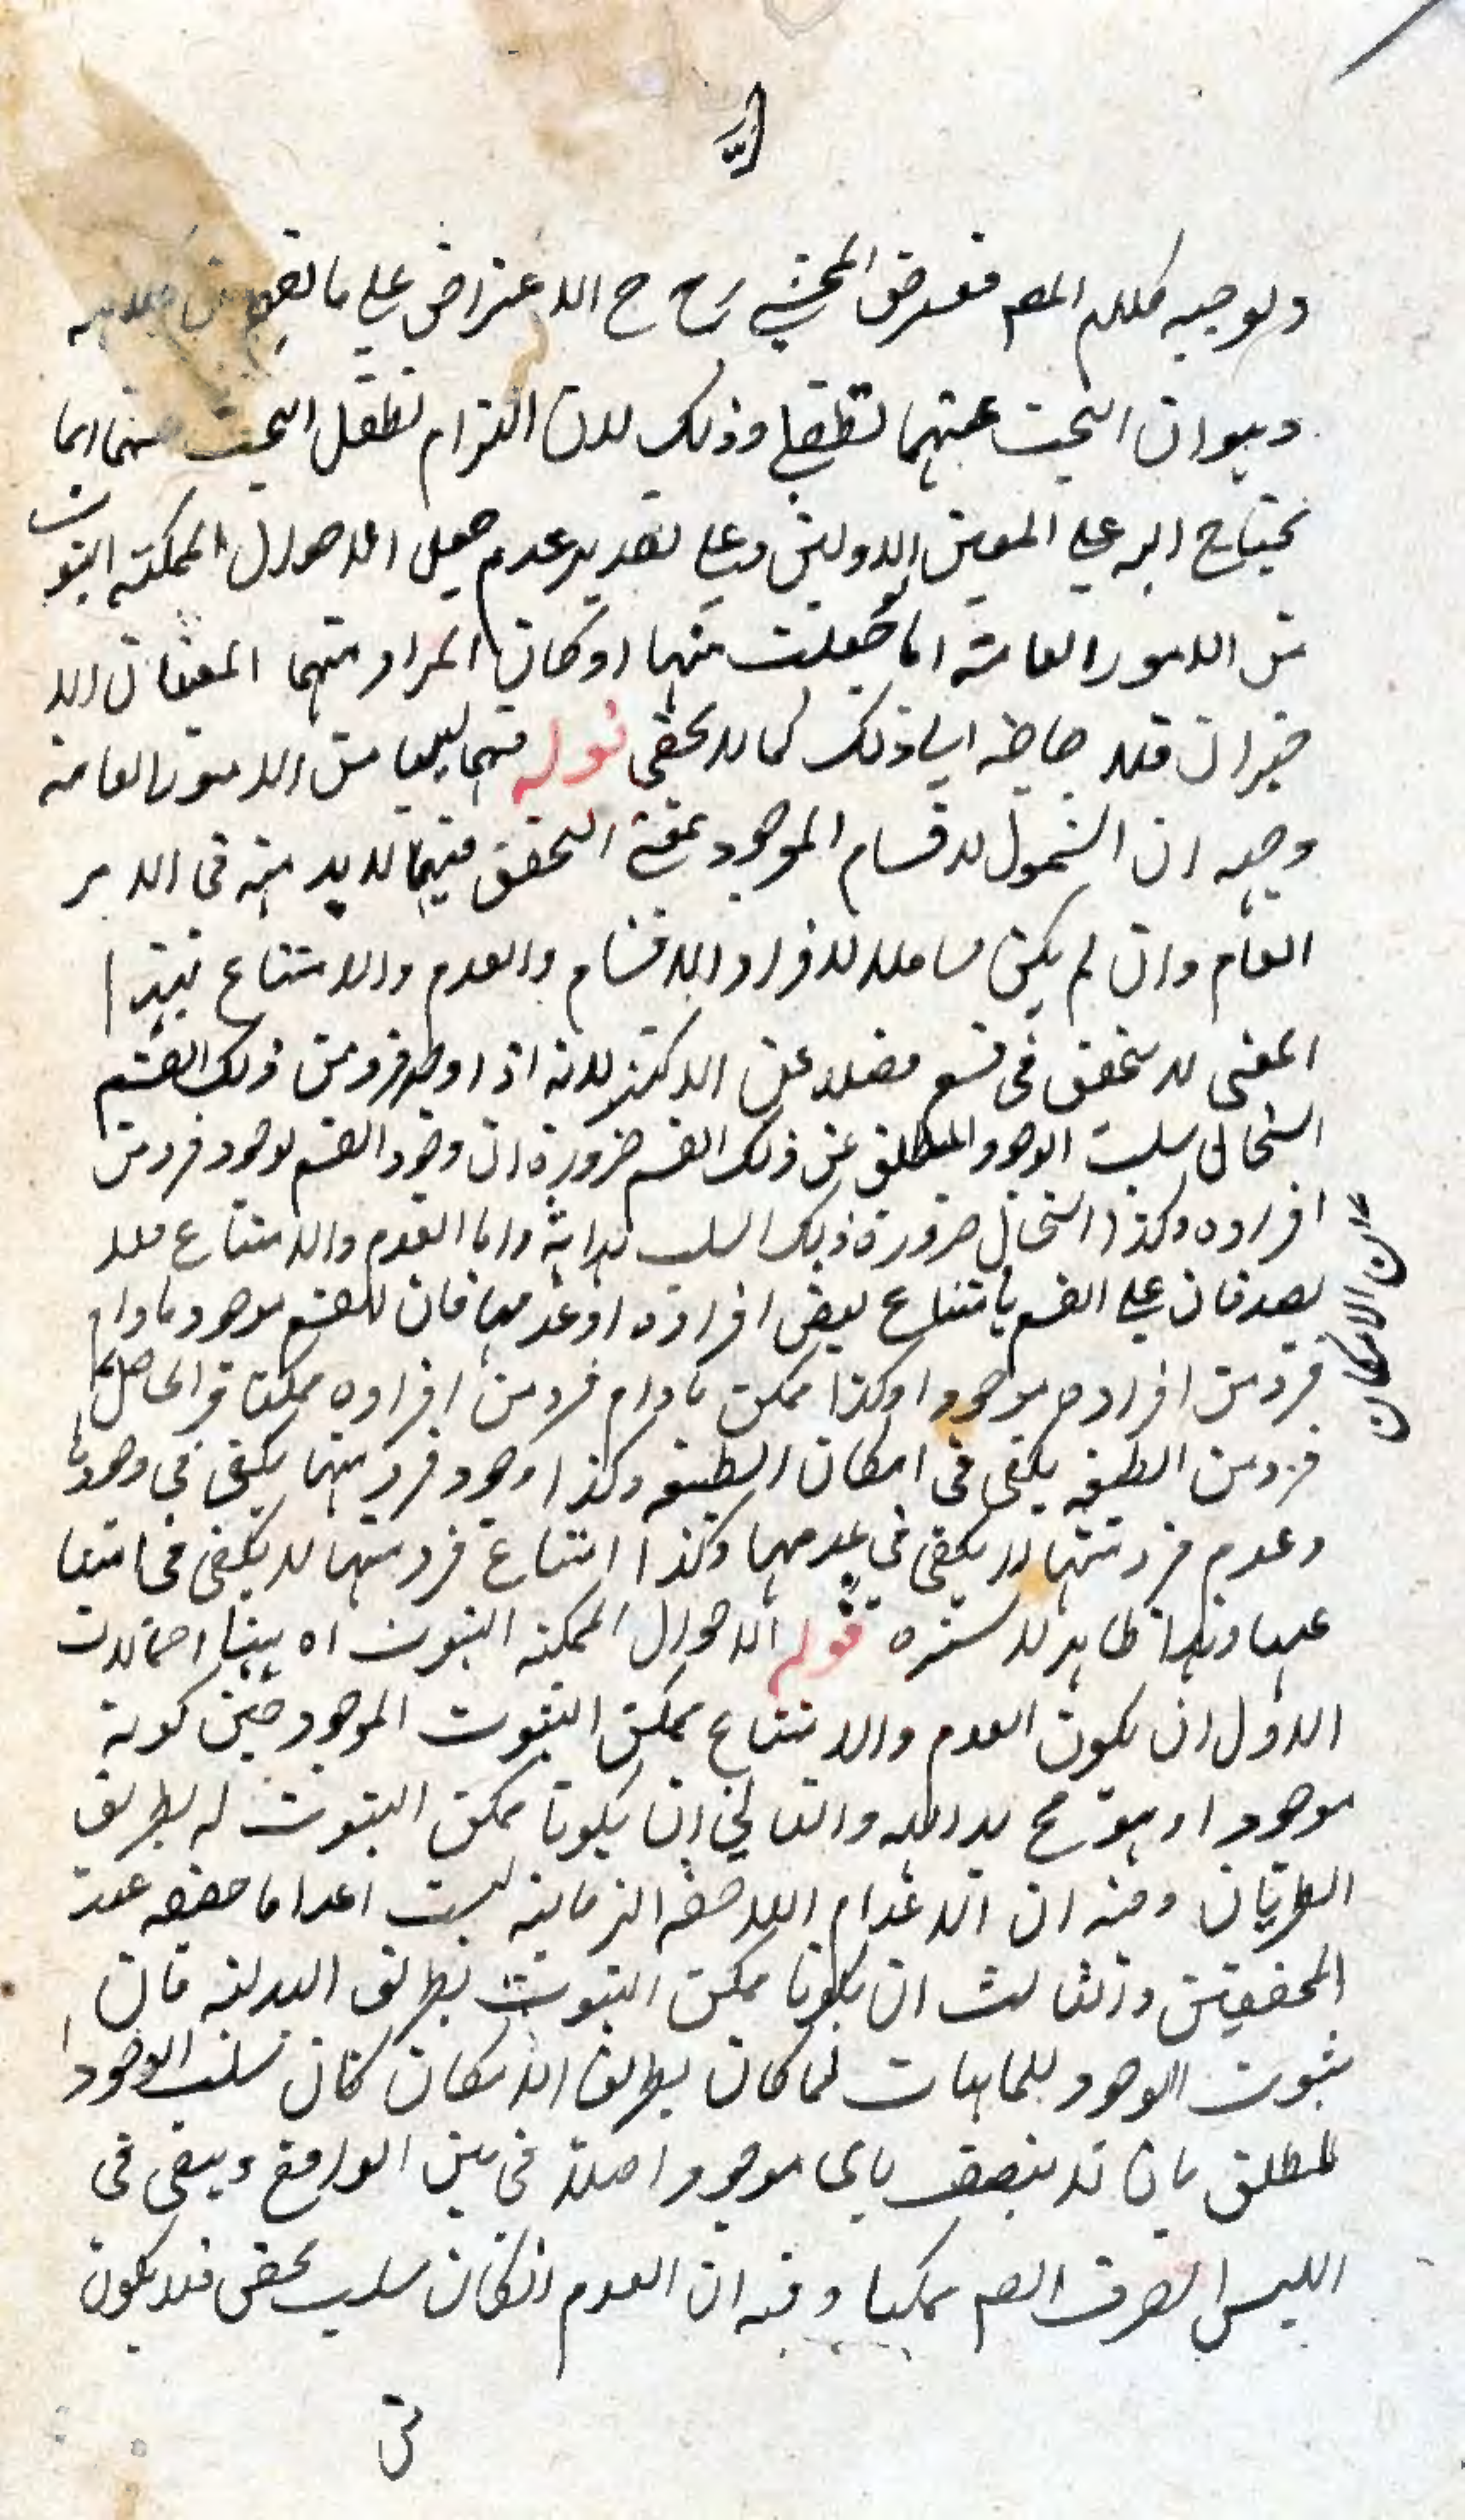 وتوجيه كلام المص فغرض المحشي رح ح الاعتراض على ما يفهم من كلامه
وهو ان البحث عنهما تطفلي وذلك لان التزام تطفل البحث عنهما انما
يحتاج اليه على المعنيين الاولين وعلى تقدير عدم جعل الاحوال الممكنة الثبوت
من الامور العامة اما لو جعلت منها او كان المراد منهما المعنيان الا
خيران فلا حاجة الى ذلك كما لا يخفى قوله فهما ليسا من الامور العامة
وجهه ان الشمول لاقسام الموجود بمعنى التحقق فيهما لا بد منه في الامر
العام وان لم يكن شاملا لافراد الاقسام والعدم والامتناع بهذا
المعنى لا يتحقق في قسم فضلا عن الاكثر لانه اذا وجد فرد من ذلك القسم
استحال سلب الوجود المطلق عن ذلك القسم ضرورة ان وجود القسم لوجود فرد من
افراده وكذا استحال ضرورة ذلك السلب بداهة واما العدم والامتناع فلا
يصدقان على القسم بامتناع بعض افراده او عدمها فان القسم موجود ما دام
فرد من افراده موجودا وكذا ممكن ما دام فرد من افراده ممكنا فالحاصل
ان الامكان
فرد من الطبيعة يكفي في امكان الطبيعة وكذا وجود فرد منها يكفي في وجودها
وعدم فرد منها لا يكفي في عدمها وكذا امتناع فرد منها لا يكفي في امتنا
عها وهذا ظاهر لا سترة قوله الاحوال الممكنة الثبوت اه ههنا احتمالات
الاول ان يكون العدم والامتناع ممكن الثبوت الموجود حين كونه
موجودا وهو مح بداهة والثاني ان يكونا ممكن الثبوت له بطريق
الطريان وفيه ان الاعدام اللاحقة الزمانية ليست اعداما حقيقة عند
المحققين والثالث ان يكونا ممكن الثبوت بطريق البدلية فان
ثبوت الوجود للماهيات لما كان بطريق الامكان كان سلب الوجود
المطلق بان لا يتصف باي موجود اصلا في متن الواقع ويبقى في
الليس الصرف ايضا ممكنا وفيه ان العدم اذا كان سلب محض فلا يكون